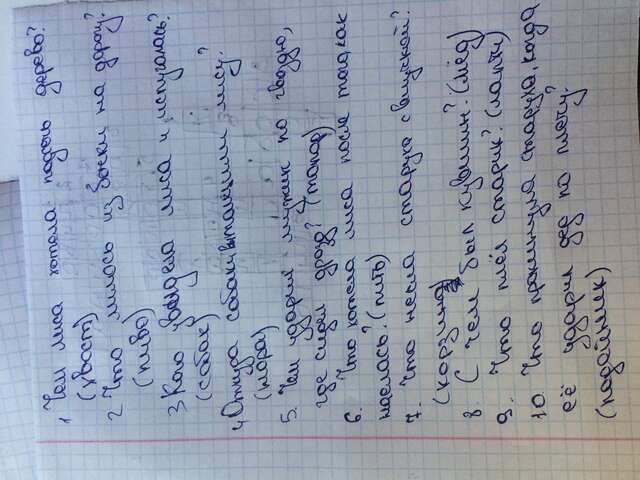 1. Чем лиса хотела подсечь дерево?
(хвост)
2. Что лилось из бочки на дорогу?
(пиво)
3. Кого увидела лиса и испугалась?
(собак)
4. Откуда собаки вытащили лису?
(нора)
5. Чем ударил мужик по гвоздю,
где сидел дрозд? (топор)
6. Что хотела лиса после того, как
наелась? (пить)
7. Что несла старуха с внучкой?
(корзина)
8. С чем был кувшин? (мёд)
9. Что плёл старик? (лапти)
10. Что прокинула старуха, когда
её ударил дед по плечу?
(подойник)